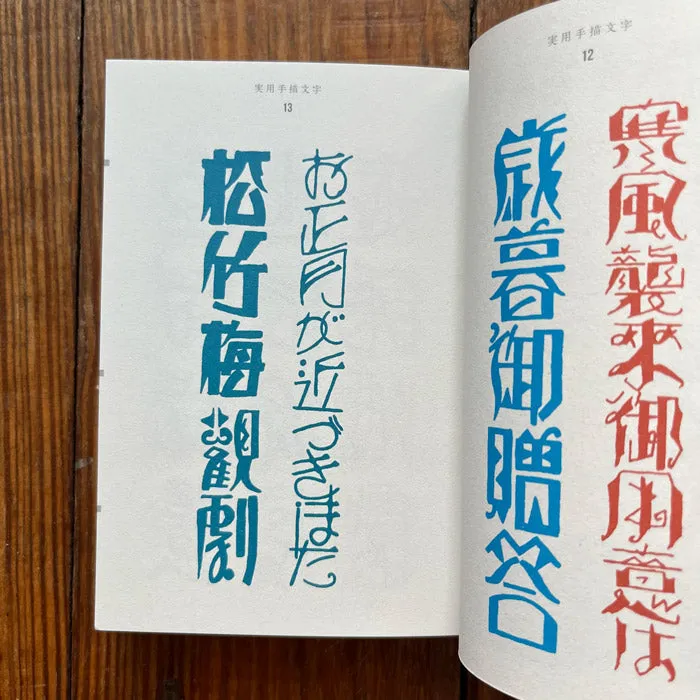 実用手描文字
12
寒風襲來御用意は
歳暮御贈答
実用手描文字
13
お正月が近づきました
松竹梅觀劇